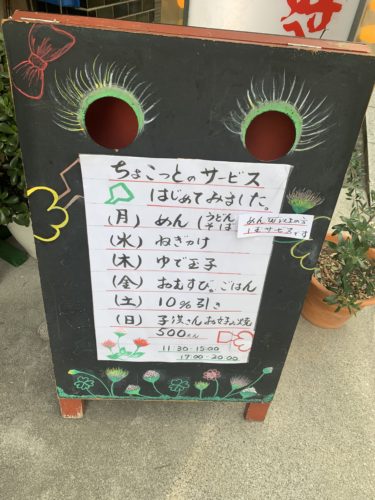 ちょこっとのサービス
はじめてみました。
(月) めん (うどん そば)
めん以外の方
上記サービスです
(水) ねぎかけ
(木) ゆで玉子
(金) おむすび。ごはん
(土) 10%引き
(日) 子供さんお好み焼
500えん
11:30-15:00
17:00-20:00